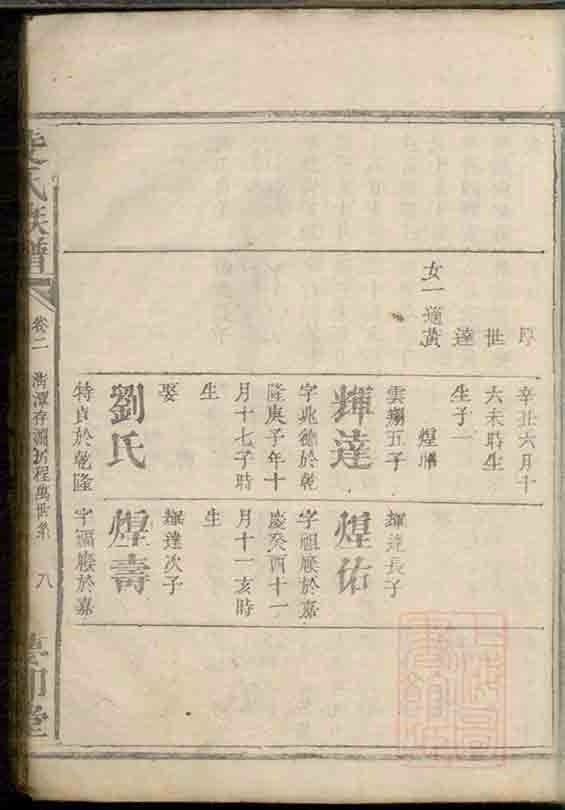 厚
世
達
女一適黃
辛丑六月十
六未時生
生子一
煌購
雲翔五子
輝達
字兆德於乾
隆庚子年十
月十七子時
生
娶
劉氏
特貞於乾隆
耀達長子
煌佑
字祖廕於嘉
慶癸酉十一
月十一亥時
生
耀達次子
煌壽
字福廕於嘉
氏族譜
卷二
八